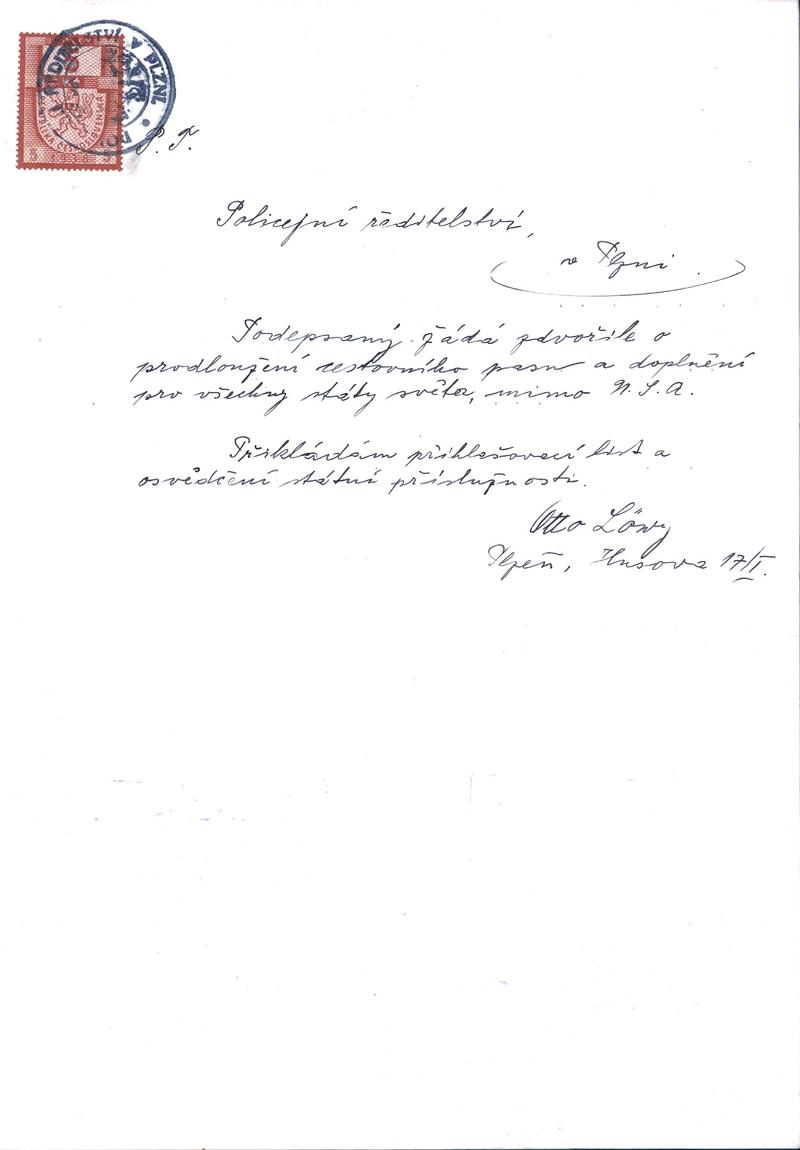 ŘEDITELSTVÍ V PLZNI.
1938
P. T.
Policejní ředitelství,
v Plzni.
Podepsaný žádá zdvořile o
prodloužení cestovního pasu a doplnění
pro všechny státy světa, mimo U. S. A.
Přikládám přihlašovací list a
osvědčení státní příslušnosti.
Otto Löwy
Plzeň, Husova 17/I.